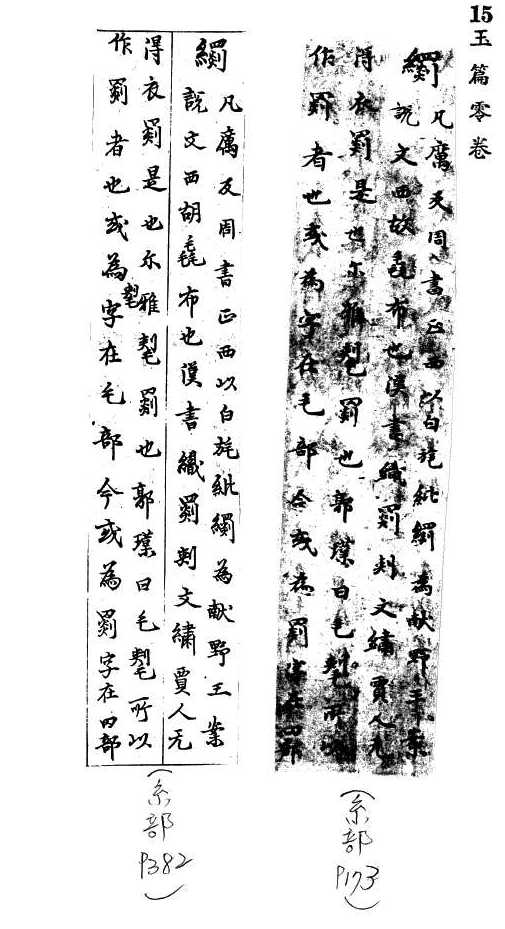 15 玉篇零卷
凡厲反周書正西以白旄紕為献野王案
説文西胡毳布也漢書織罽文繡賈人无
得衣罽是也尓雅氂罽也郭璞曰毛氂所以
作罽者也或為字在毛部今或為罽字在部
(糸部 P173)
凡厲反周書正西以白旄紕為献野王案
説文西胡毳布也漢書織罽文繡賈人无
得衣罽是也尓雅氂罽也郭璞曰毛氂所以
作罽者也或為氂字在毛部今或為罽字在部
(糸部 P382)